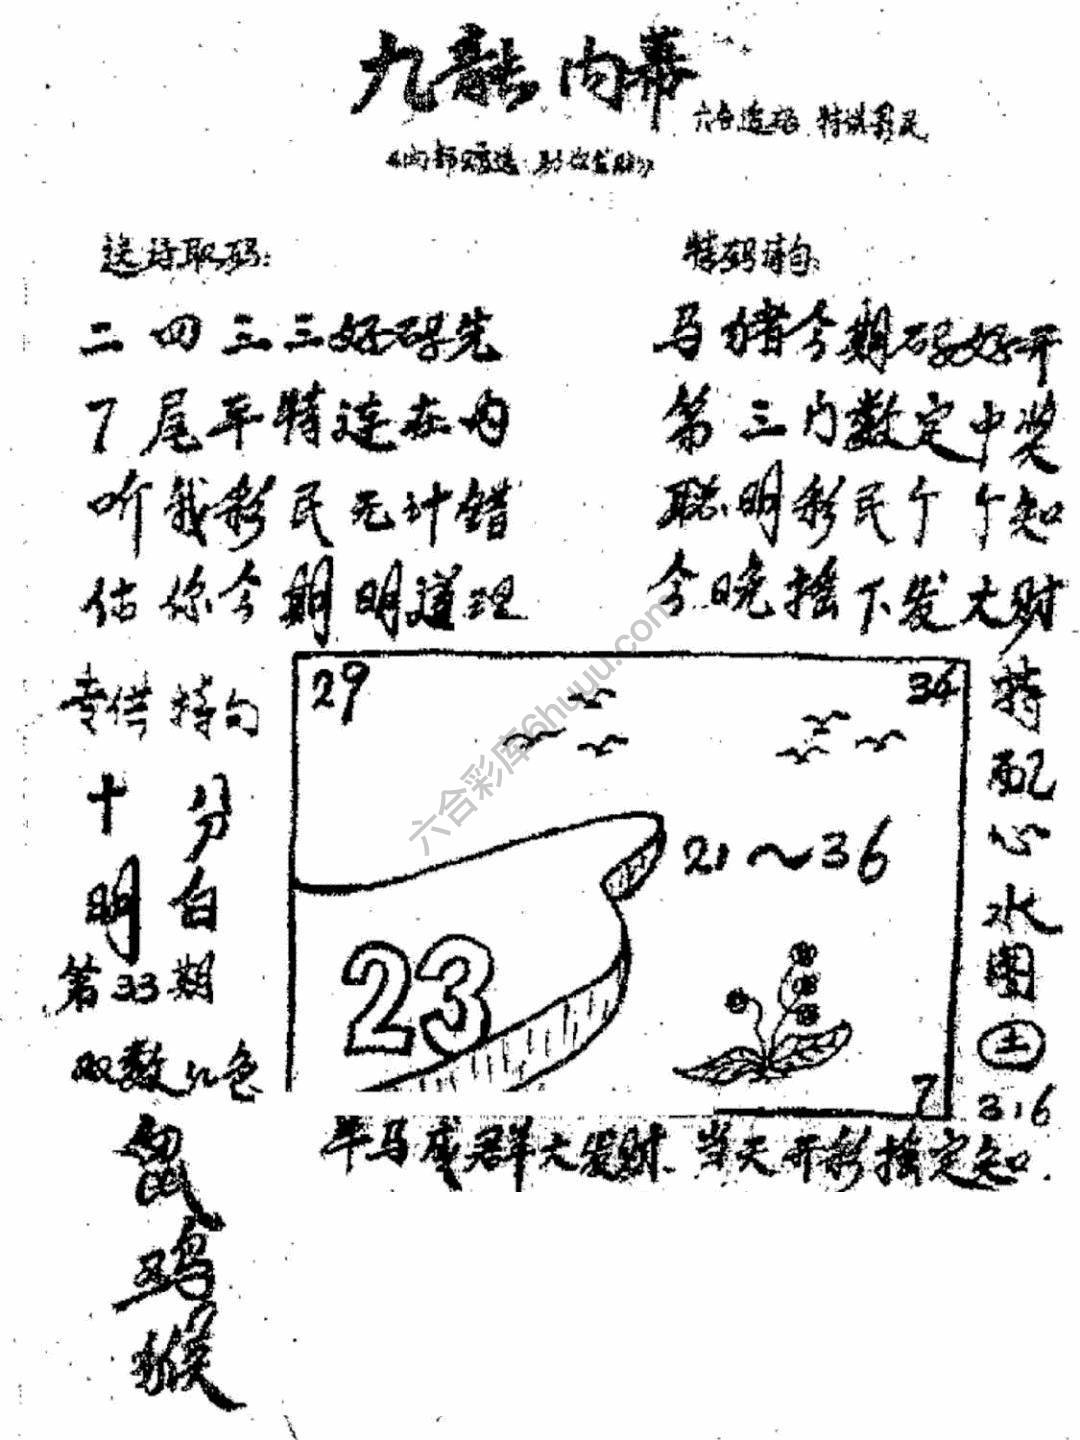 九龙内幕
六合透码
《内部赠送
送诗取码:
二四三三好码先
7尾平特连在内
听我彩民无计错
估你今期明道理
特码诗句:
马猪今期码好开
第三门数定中奖
聪明彩民个个知
今晚搖下发大财
专供特句
十分
明白
第33期
双数红色
鼠
鸡
猴
29
34
21～36
23
7
特配心水圖
土
316
羊马成群大发财.当天开彩搖定知.
六合彩库6huuu.com